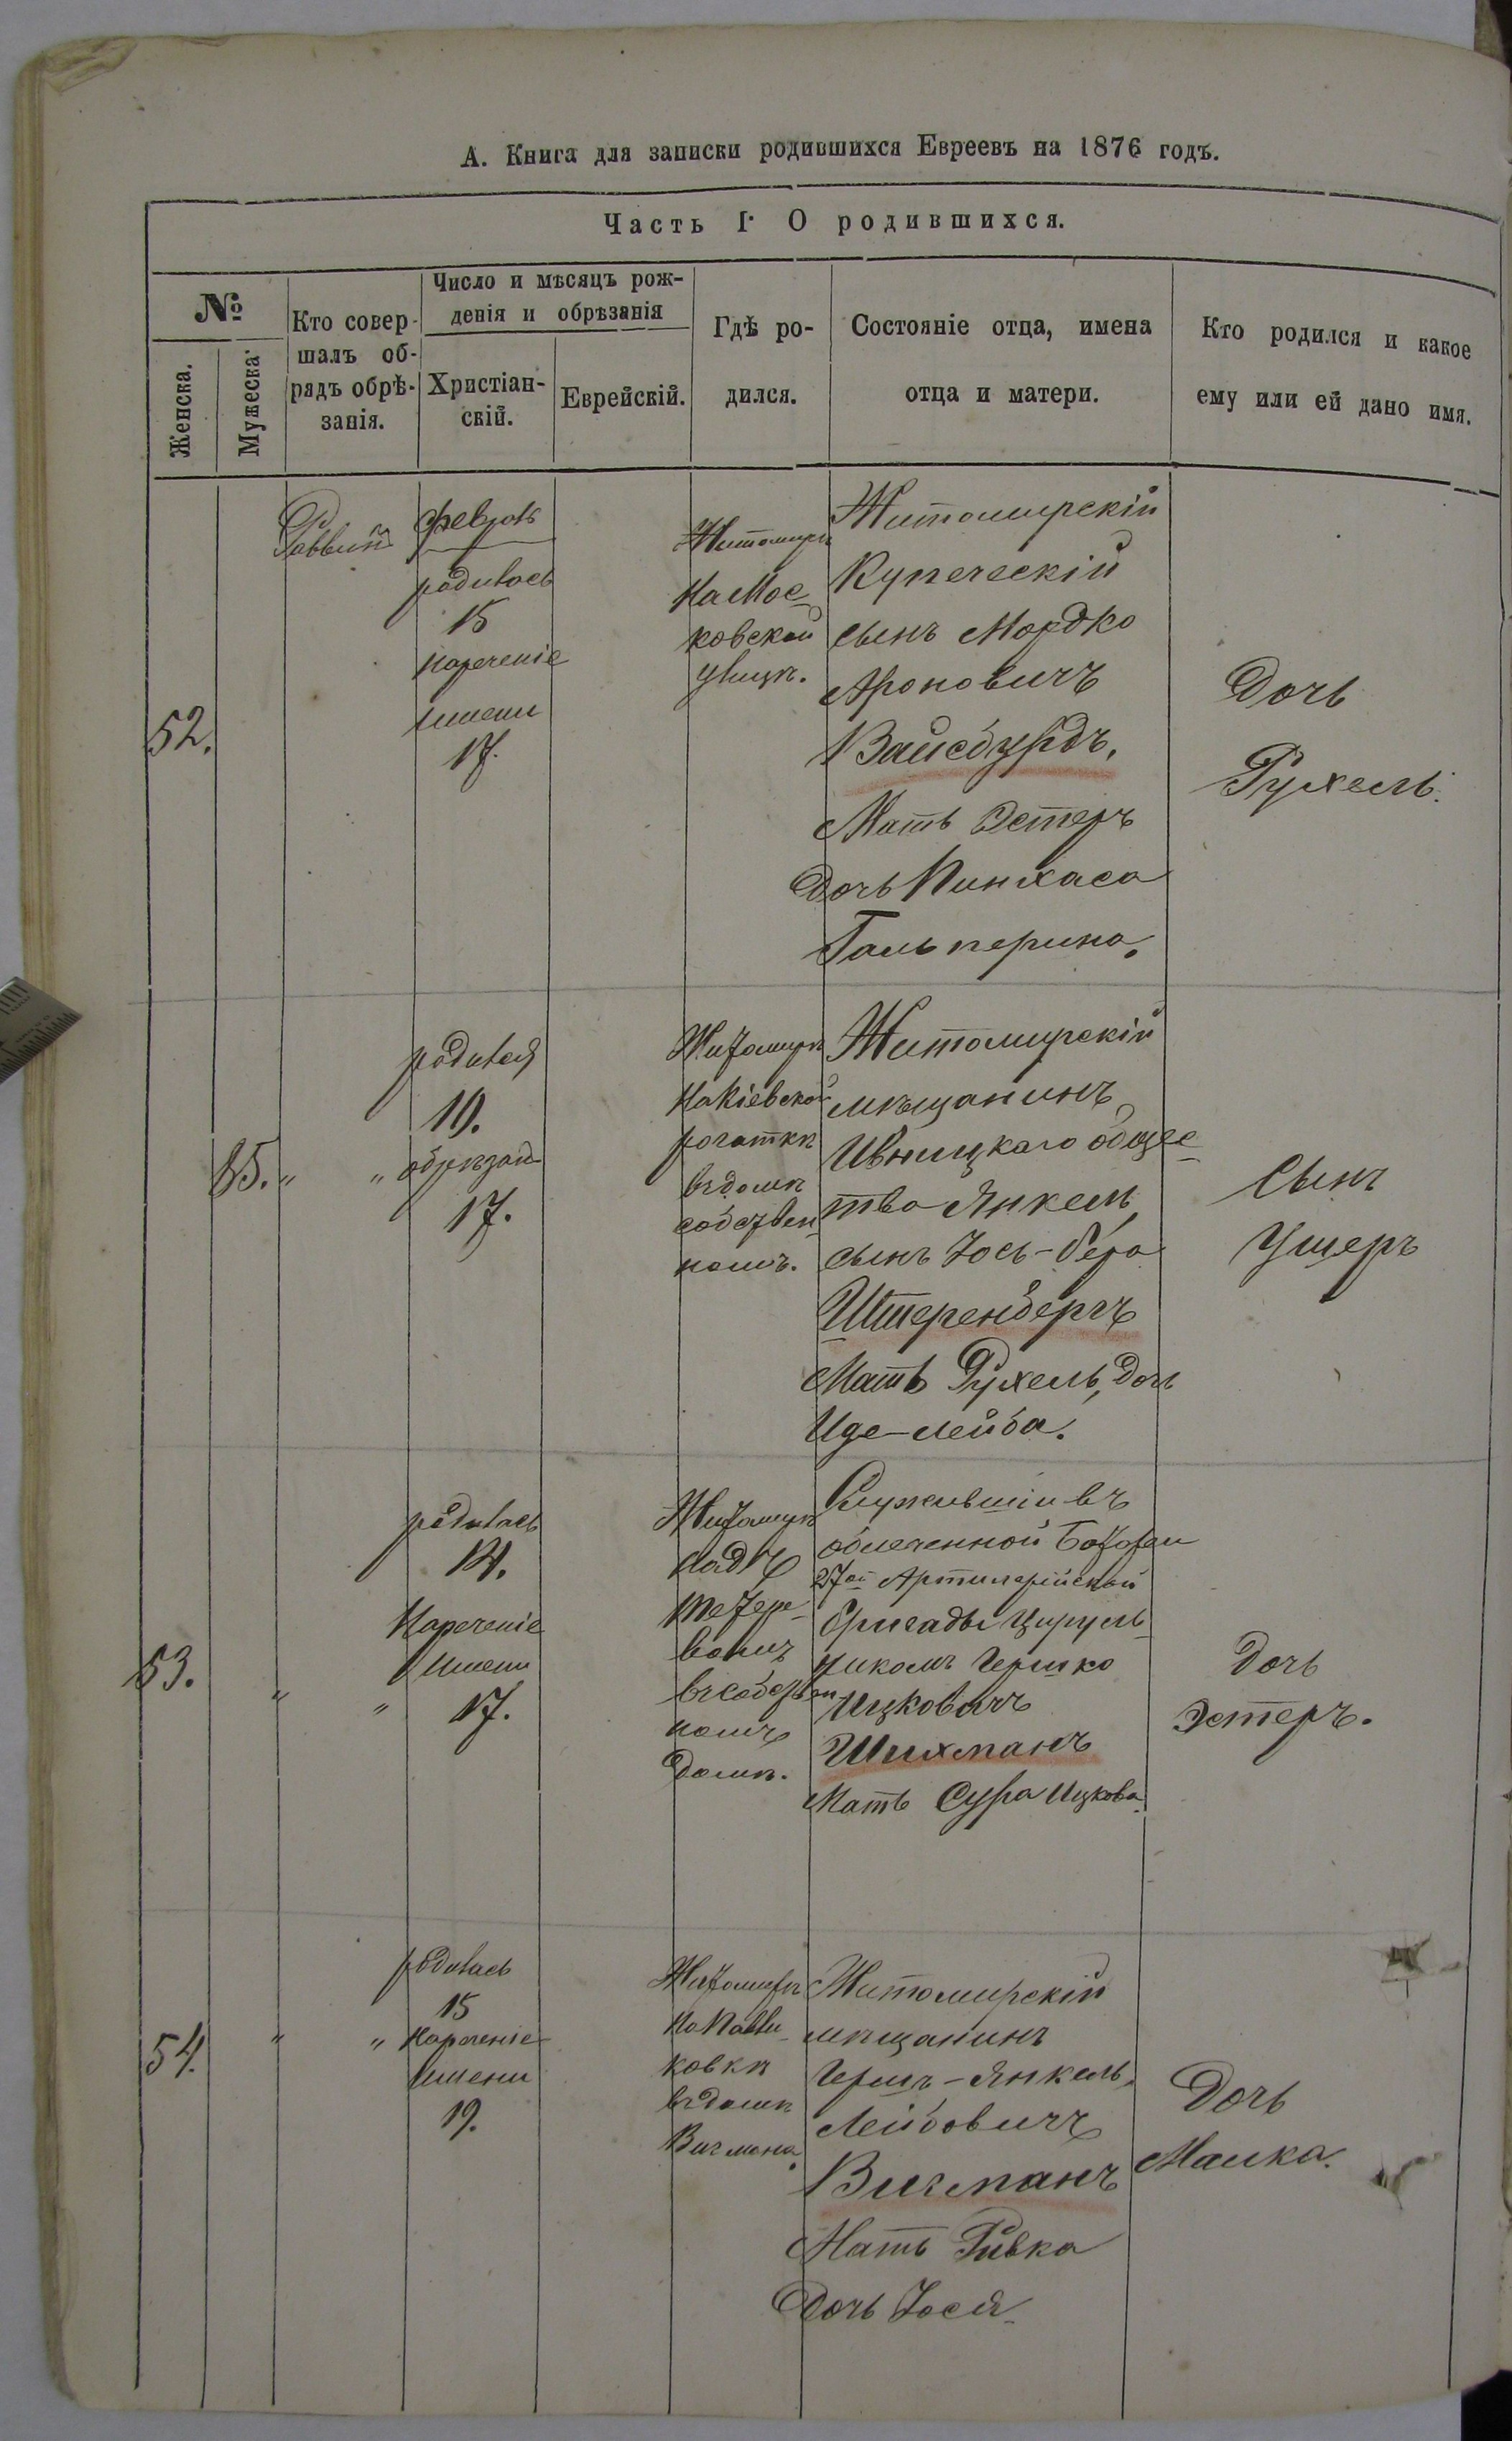 А. Книга для записки родившихся Евреевъ на 1876 годъ.
Часть I. О родившихся.
№
Женска.
Мужеска.
Кто совер-
шалъ об-
рядъ обрѣ-
занія.
Число и мѣсяцъ рож-
денія и обрѣзанія
Христіан-
скій.
Еврейскій.
Гдѣ ро-
дился.
Состояніе отца, имена
отца и матери.
Кто родился и какое
ему или ей дано имя.
52.
Раввин
февраль
родилась
15
нареченіе
имени
17.
Житомиръ
На Мос-
ковской
улицѣ.
Житомирскій
Купеческій
сынъ Мордко
Ароновичъ
Вайсбурдъ,
Мать Эстеръ
дочь Пинхаса
Гальперина.
Дочь
Рухель.
85. "
"
родился
10.
обрѣзан
17.
Житомиръ
На Кіевской
рогаткѣ
въ домѣ
собствен-
номъ.
Житомирскій
мѣщанинъ
Ивницкаго общес-
тва Янкель
сынъ Іось-Бера
Штеренбергъ
Мать Рухель, дочь
Иде-Лейба.
Сынъ
Ушеръ
53.
"
"
родилась
14.
Нареченіе
имени
17.
Житомиръ
надъ
Тетере-
вомъ
въ собствен
номъ
домѣ.
Служившій въ
облегченной Батареи
27ой Артилерійской
бригады Цируль-
никомъ Гершко
Ицковичъ
Шихманъ
Мать Сура Ицкова.
Дочь
Эстеръ.
54.
"
"
родилась
15
Нареченіе
имени
19.
Житомиръ
На Павли-
ковкѣ
въ домѣ
Вигмана.
Житомирскій
мѣщанинъ
Гершъ-Янкель
Лейбовичъ
Вигманъ
Мать Ривка
дочь Іося
Дочь
Малка.